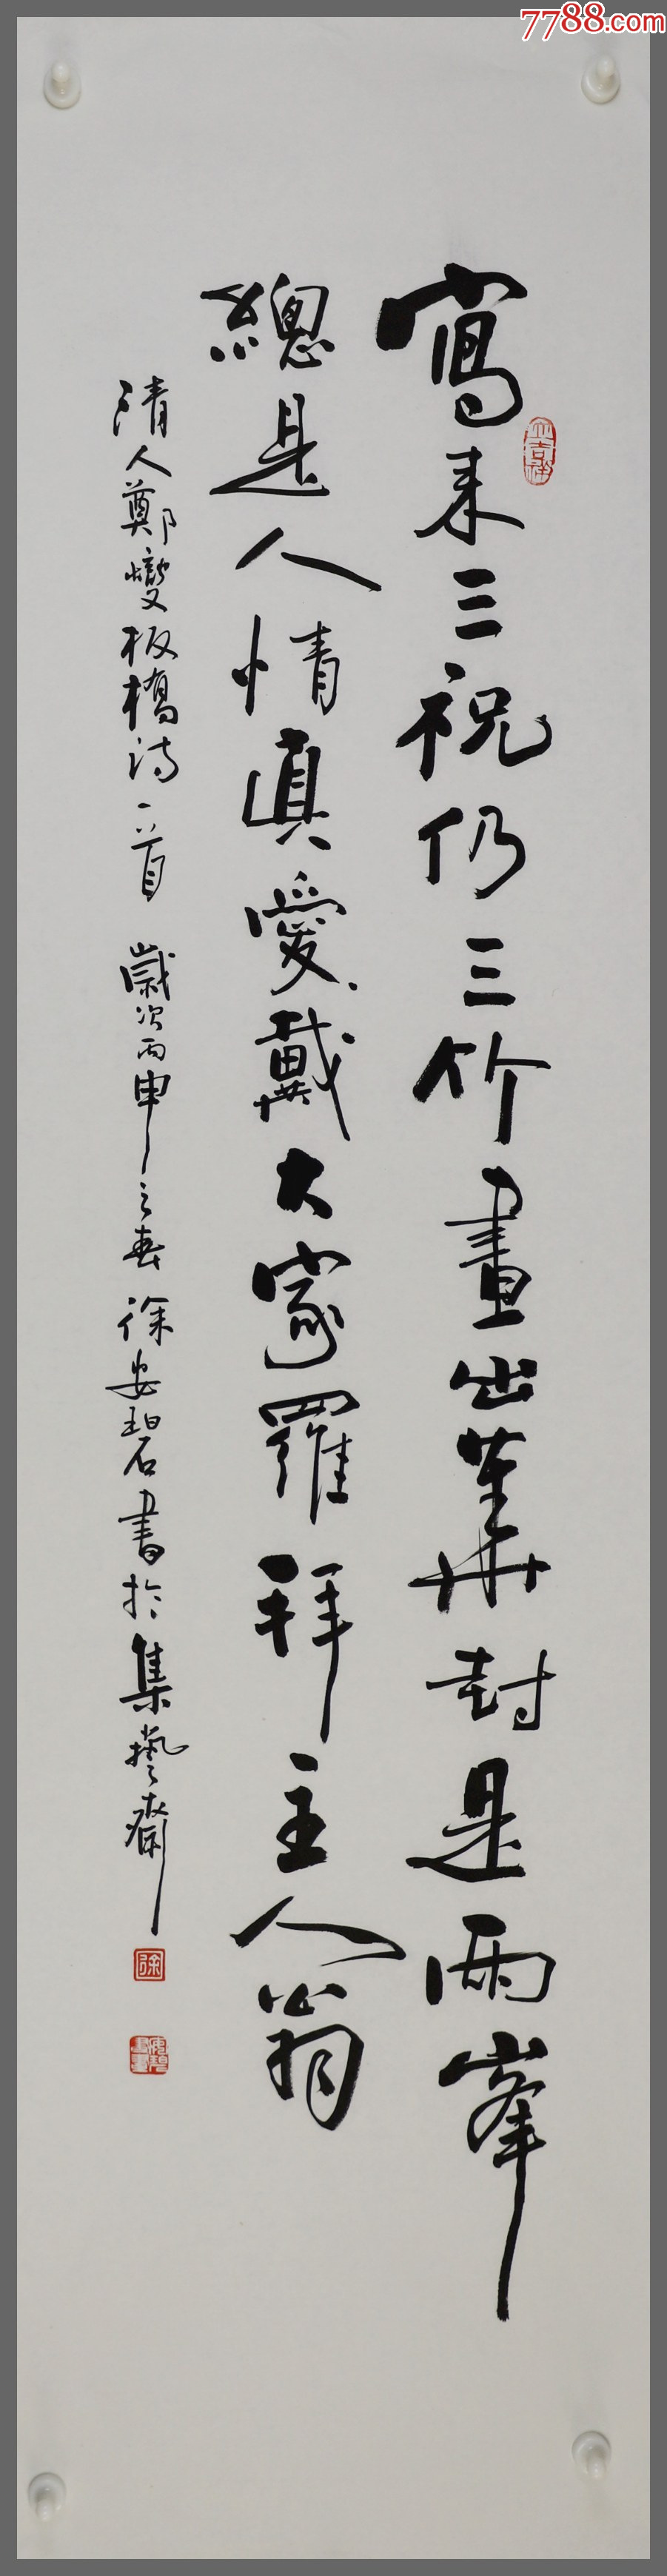 7788.com
寫來三祝仍三竹畫出華封是兩峯
總是人情真愛戴大家羅拜主人翁
清人鄭燮板橋詩一首 歲次丙申之春 徐安碧書於集藝齋
徐